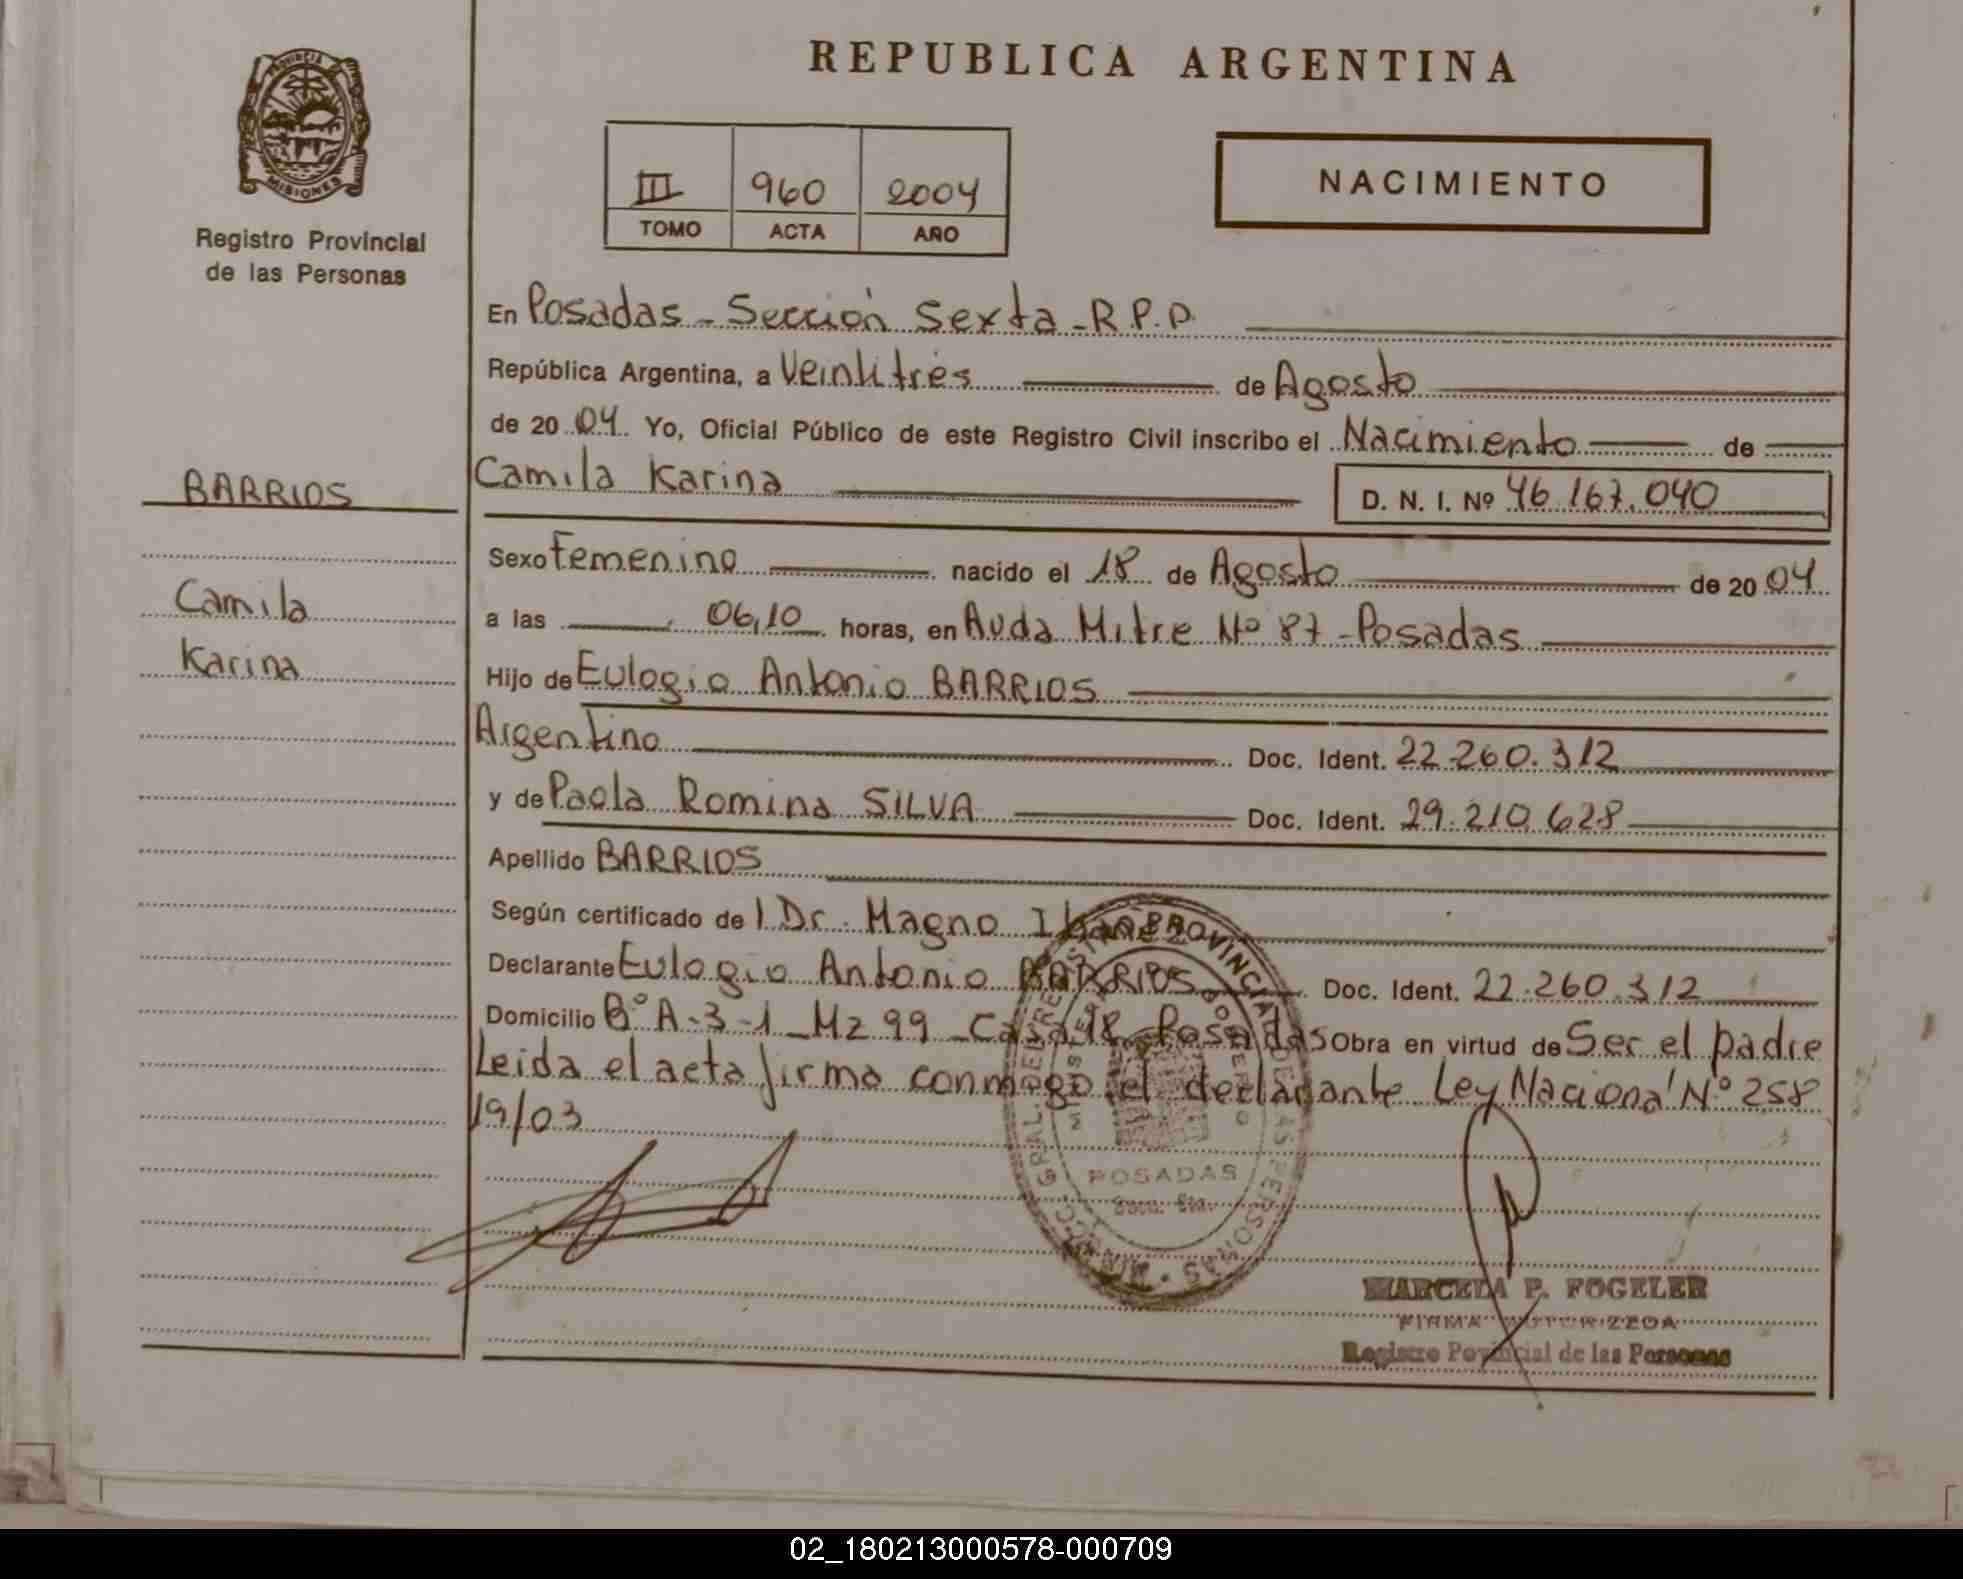 REPUBLICA ARGENTINA
PROVINCIA
MISIONES
Registro Provincial
de las Personas
III 960 2004
TOMO ACTA AÑO
NACIMIENTO
En Posadas - Sección Sexta - R.P.P.
República Argentina, a Veintitrés de Agosto
de 2004 Yo, Oficial Público de este Registro Civil inscribo el Nacimiento de
BARRIOS
Camila Karina D. N. I. Nº 46.167.040
Sexo Femenino nacido el 18 de Agosto de 2004
Camila
a las 06,10 horas, en Avda Mitre Nº 87 - Posadas
Karina
Hijo de Eulogio Antonio BARRIOS
Argentino Doc. Ident. 22.260.312
y de Paola Romina SILVA Doc. Ident. 29.210.628
Apellido BARRIOS
Según certificado de l Dr. Magno Ibañez
Declarante Eulogio Antonio BARRIOS Doc. Ident. 22.260.312
Domicilio Bº A-3-1 - Mz 99 - Casa 18 - Posadas Obra en virtud de Ser el padre
Leida el acta firma conmigo el declarante Ley Nacional Nº 258
19/03
POSADAS
MARCELA P. FOGELER
FIRMA AUTORIZADA
Registro Provincial de las Personas
02_180213000578-000709